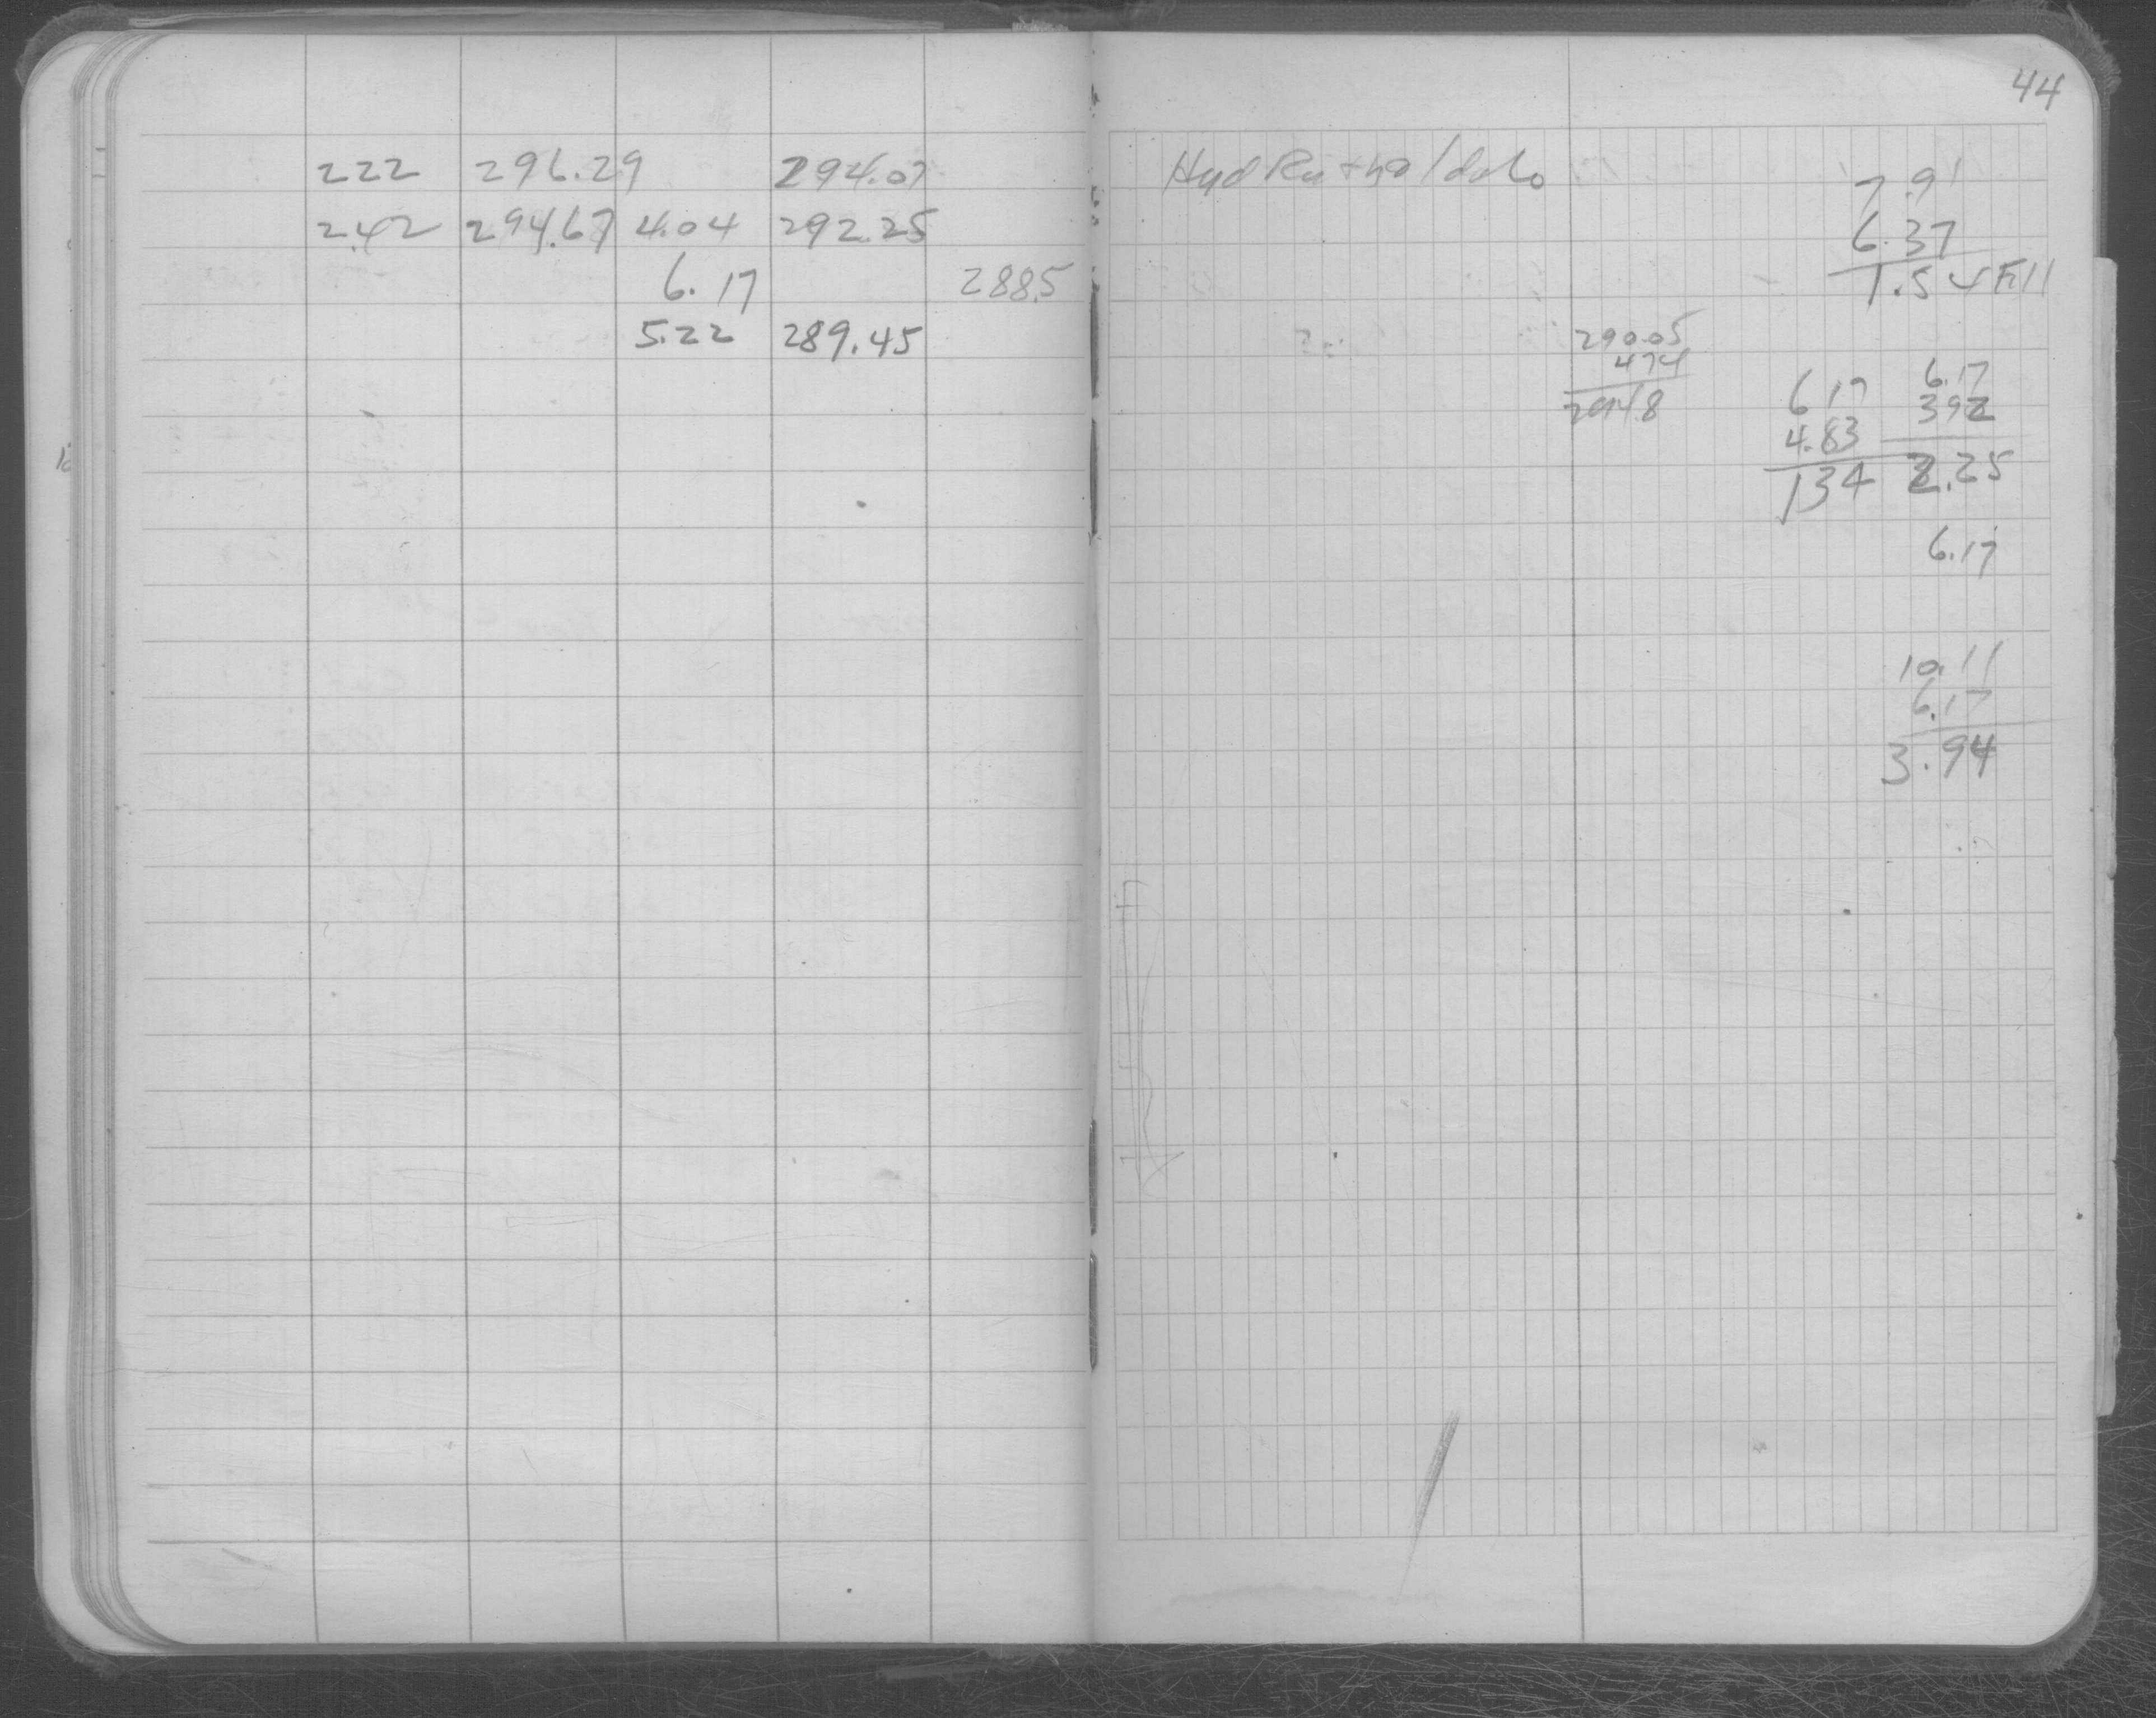 222 296.29 294.07
2.42 294.67 4.04 292.25
6.17 288.5
5.22 289.45
44
Hyd
7.91
6.37
1.54 Fill
290.05
474
2948
6.17
4.83
134
6.17
392
2.25
6.17
10.11
6.17
3.94